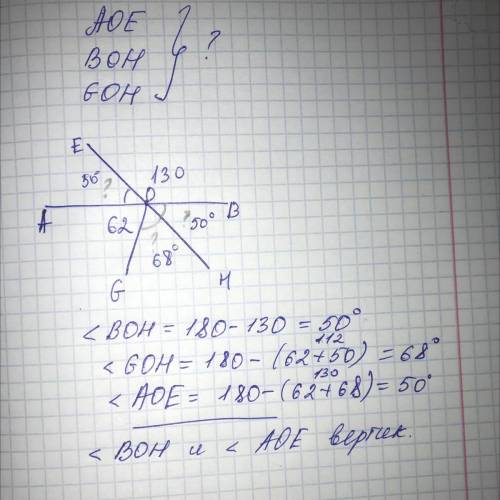 AOE
BOH } ?
GOH
E
50° ? O 130
A 62 ? 50° B
? 68°
G H
< BOH = 180 - 130 = 50°
112
< GOH = 180 - (62 + 50) = 68°
130
< AOE = 180 - (62 + 68) = 50°
< BOH и < AOE вертик.